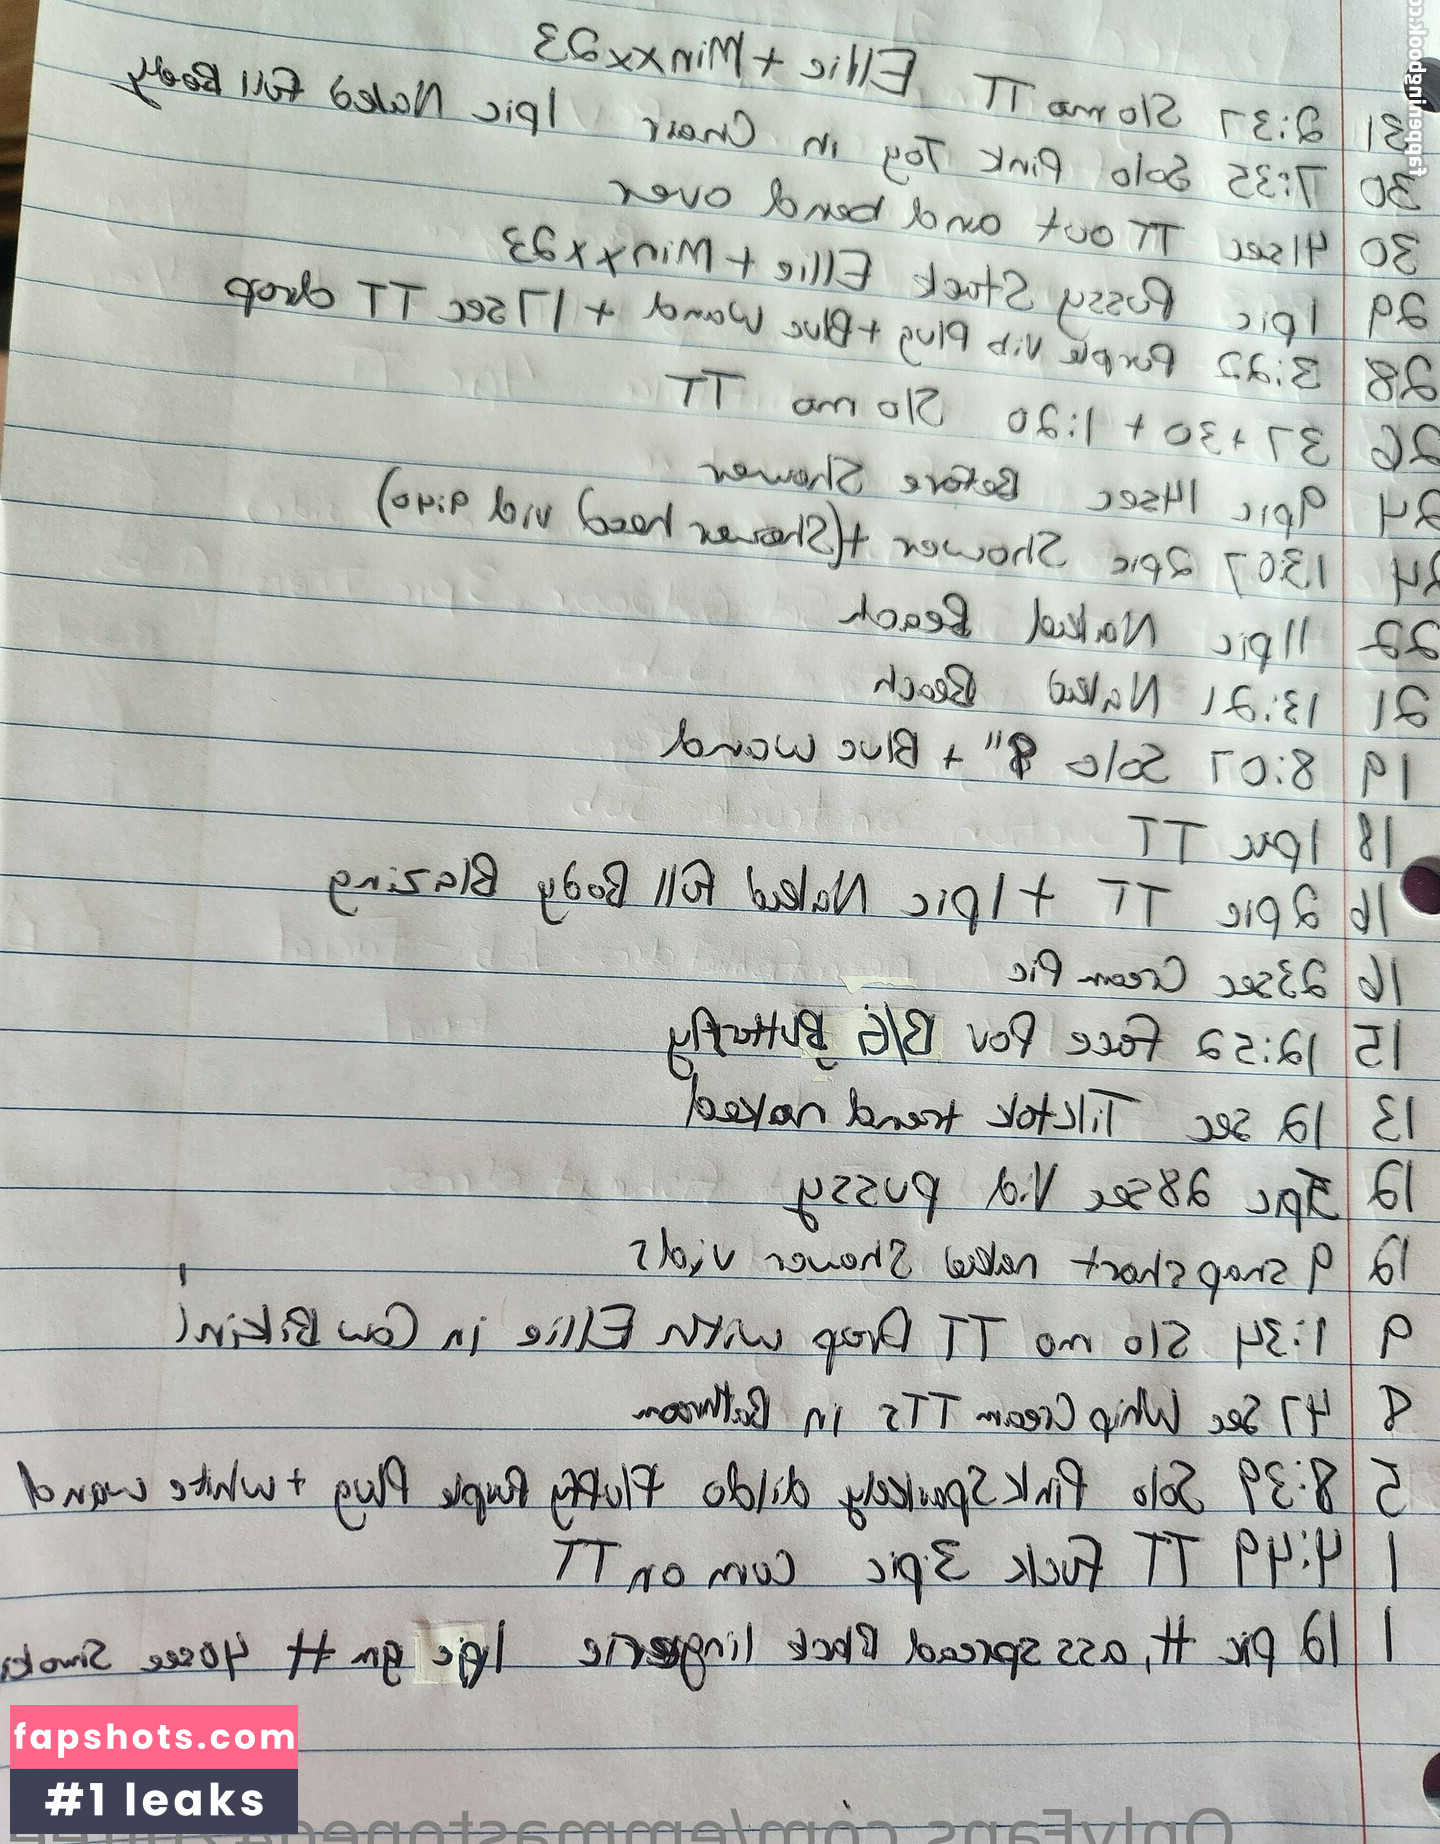 fappeningbook.co
31 2:37 Slo mo TT Ellie + Minxx23
30 7:35 Solo Pink Toy in Chair 1pic Naked Full Body
30 41sec TT out and bend over
29 1pic Pussy Stack Ellie + Minxx23
28 3:22 Purple Vib Plug + Blue Wand + 17sec TT drop
26 37+30+1:20 Slo mo TT
24 9pic 14sec Before Shower
24 13:07 2pic Shower +(Shower head vid 9:40)
22 11pic Naked Beach
21 13:21 Naked Beach
19 8:07 Solo 8" + Blue wand
18 1pic TT
16 2pic TT +1pic Naked Full Body Blazing
16 23sec Cream Pic
15 12:52 Face Pov B/G Butterfly
13 12 sec Tiktok trend naked
12 5pic 28sec Vid pussy
12 9 snapshot naked Shower vids
9 1:34 Slo mo TT Drop with Ellie in Cow Bikini
8 47sec Whip Cream TTs in Bathroom
5 8:39 Solo Pink Sparkely dildo Fluffy Purple Plug + white wand
1 4:49 TT Fuck 3pic Cum on TT
1 12 pic tt, ass spread Black lingerie 1pic gm tt 40sec Smoki
fapshots.com
#1 leaks